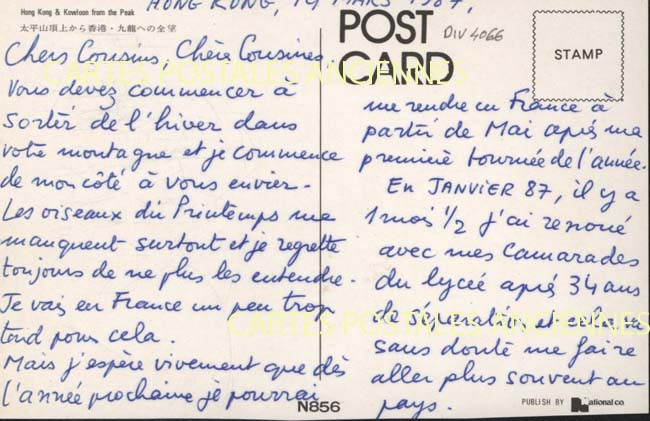 Hong Kong & Kowloon from the Peak
太平山頂上から香港・九龍への全望
HONG KONG, 14 MARS 1987,
POST
CARD
DIV 4066
STAMP
CARTES POSTALES ANCIENNES
Chers Cousins, Chère Cousines,
Vous devez commencer à
sortir de l'hiver dans
votre montagne et je commence
de mon côté à vous envier.
Les oiseaux du Printemps me
manquent surtout et je regrette
toujours de ne plus les entendre.
Je vais en France un peu trop
tard pour cela.
Mais j'espère vivement que dès
l'année prochaine je pourrai
me rendre en France à
partir de Mai après ma
première tournée de l'année.
En JANVIER 87, il y a
1 mois 1/2 j'ai renoué
avec mes camarades
du lycée après 34 ans
de et cela va
sans doute me faire
aller plus souvent au
pays.
CARTES POSTALES ANCIENNES
N856
PUBLISH BY National co.